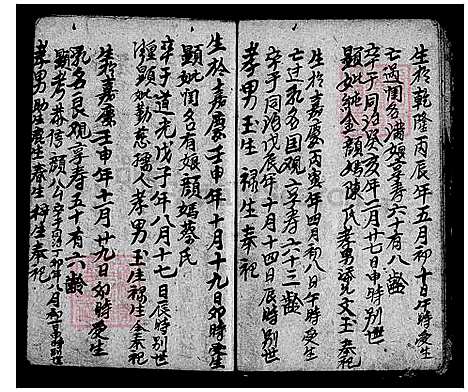 生於乾隆丙辰年五月初十日午時受生
亡過閨名滿娘享壽六十有八齡
卒于同治癸亥年二月廿七日申時別世
顯妣純金顏媽陳氏孝男 文玉奉祀
生於嘉慶丙寅年四月初八日午時受生
亡過乳名國觀享壽六十三齡
卒于同治戊辰年十月十四日辰時別世
孝男玉生祿生奉祀
生於嘉慶壬申年十月十九日卯時受生
顯妣閨名有娘顏媽蔡氏
卒于道光戊子年八月十七日辰時別世
顯妣勤慈孺人孝男玉生祿生全奉祀
生於嘉慶壬申年十一月廿九日卯時受生
乳名良觀享壽五十有六齡
顯考恭信顏公卒于 年八月初
孝男助生慶生春生 生奉祀